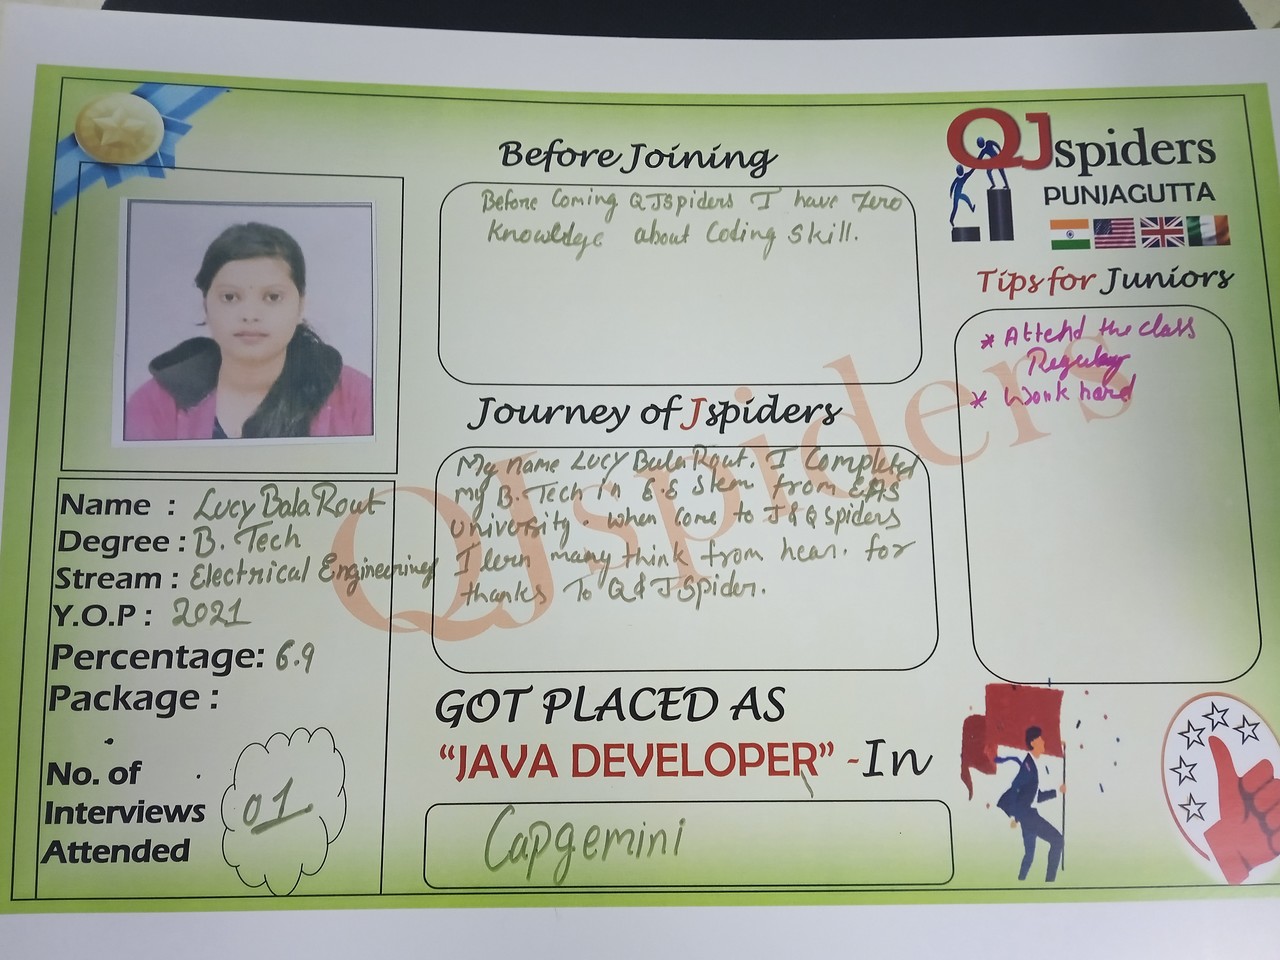 Before Joining
Before Coming QJSpiders I have Zero
Knowledge about Coding Skill.
QJspiders
PUNJAGUTTA
Tips for Juniors
* Attend the class
Regulary
* Work hard
Journey of Jspiders
My name Lucy Bala Rout. I Completed
my B.Tech in from
University. When Come to J&QSpiders
I lern many think from hear. for
thanks To Q&JSpider.
Name : Lucy Bala Rout
Degree : B. Tech
Stream : Electrical Engineering
Y.O.P : 2021
Percentage: 6.9
Package :
No. of
Interviews
Attended
01
GOT PLACED AS
“JAVA DEVELOPER” -In
Capgemini
QJspiders